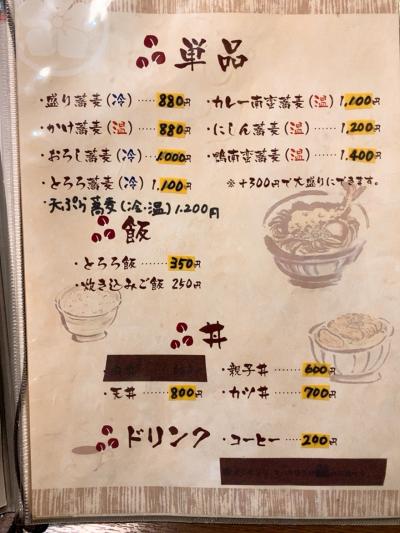 単品
・盛り蕎麦(冷)‥‥880円
・かけ蕎麦(温)‥‥880円
・おろし蕎麦(冷)‥1000円
・とろろ蕎麦(冷) 1.100円
・天ぷら蕎麦(冷・温) 1.200円
・カレー南蛮蕎麦(温) 1,100円
・にしん蕎麦(温) 1.200円
・鴨南蛮蕎麦(温) 1.400円
※+300円で大盛りにできます。
飯
・とろろ飯‥‥‥350円
・炊き込みご飯 250円
丼
・天丼‥‥‥800円
・親子丼‥‥‥600円
・カツ丼‥‥‥700円
ドリンク
・コーヒー‥‥200円